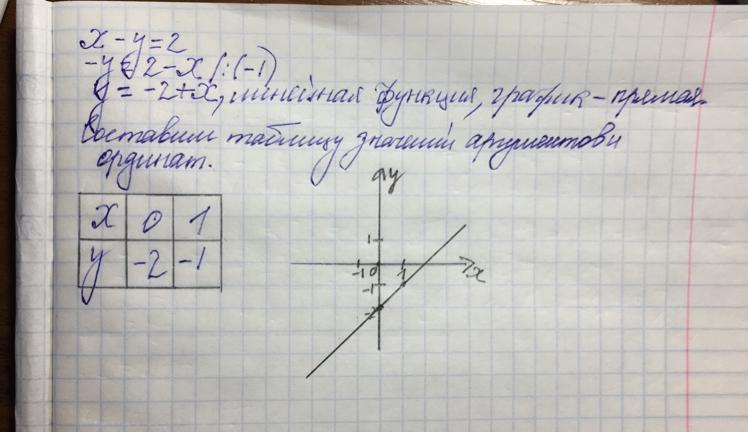 x - y = 2
-y = 2 - x /:(-1)
y = -2 + x, линейная функция, график - прямая.
Составим таблицу значений аргументов и
ординат.
x 0 1
y -2 -1
y
1
-1 0 1 x
-1
-2